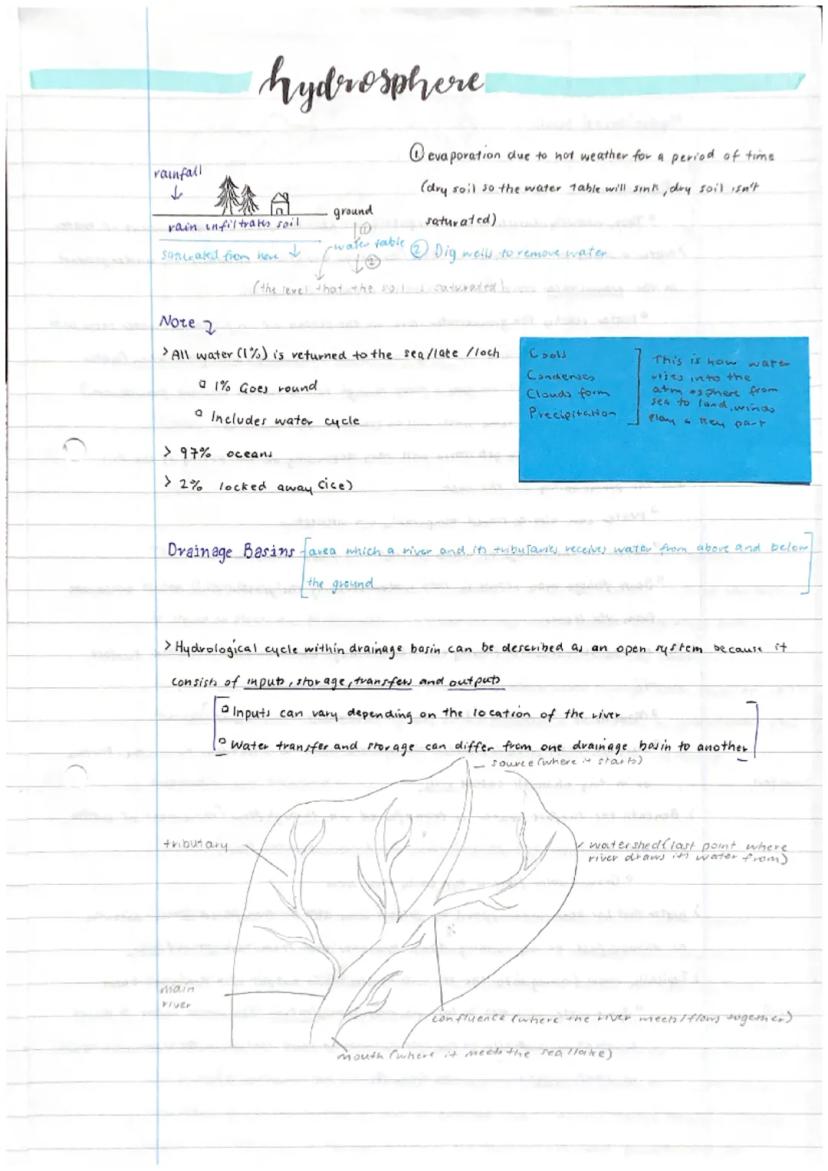 hydrosphere
rainfall
ground
rain infiltrates soil
①
saturated from here
water table
②
(the level that the soil is saturated)
① evaporation due to hot weather for a period of time
(dry soil so the water table will sink, dry soil isn't
saturated)
② Dig wells to remove water
Note
> All water (1%) is returned to the sea/lake/loch
1% Goes round
Includes water cycle
> 97% oceans
> 2% locked away (ice)
Cools
Condenses
Clouds form
Precipitation
This is how water
into the
atmosphere from
sea to land, winds
play a key part
Drainage Basins
area which a river and its tributaries receives water from above and below
the ground
> Hydrological cycle within drainage basin can be described as an open system because it
consists of inputs, storage, transfers and outputs
Inputs can vary depending on the location of the river
Water transfer and storage can differ from one drainage basin to another
source (where it starts)
tributary
watershed (last point where
river draws its water from)
main
river
confluence (where the river meets/flows together)
mouth (where it meets the sea/lake)